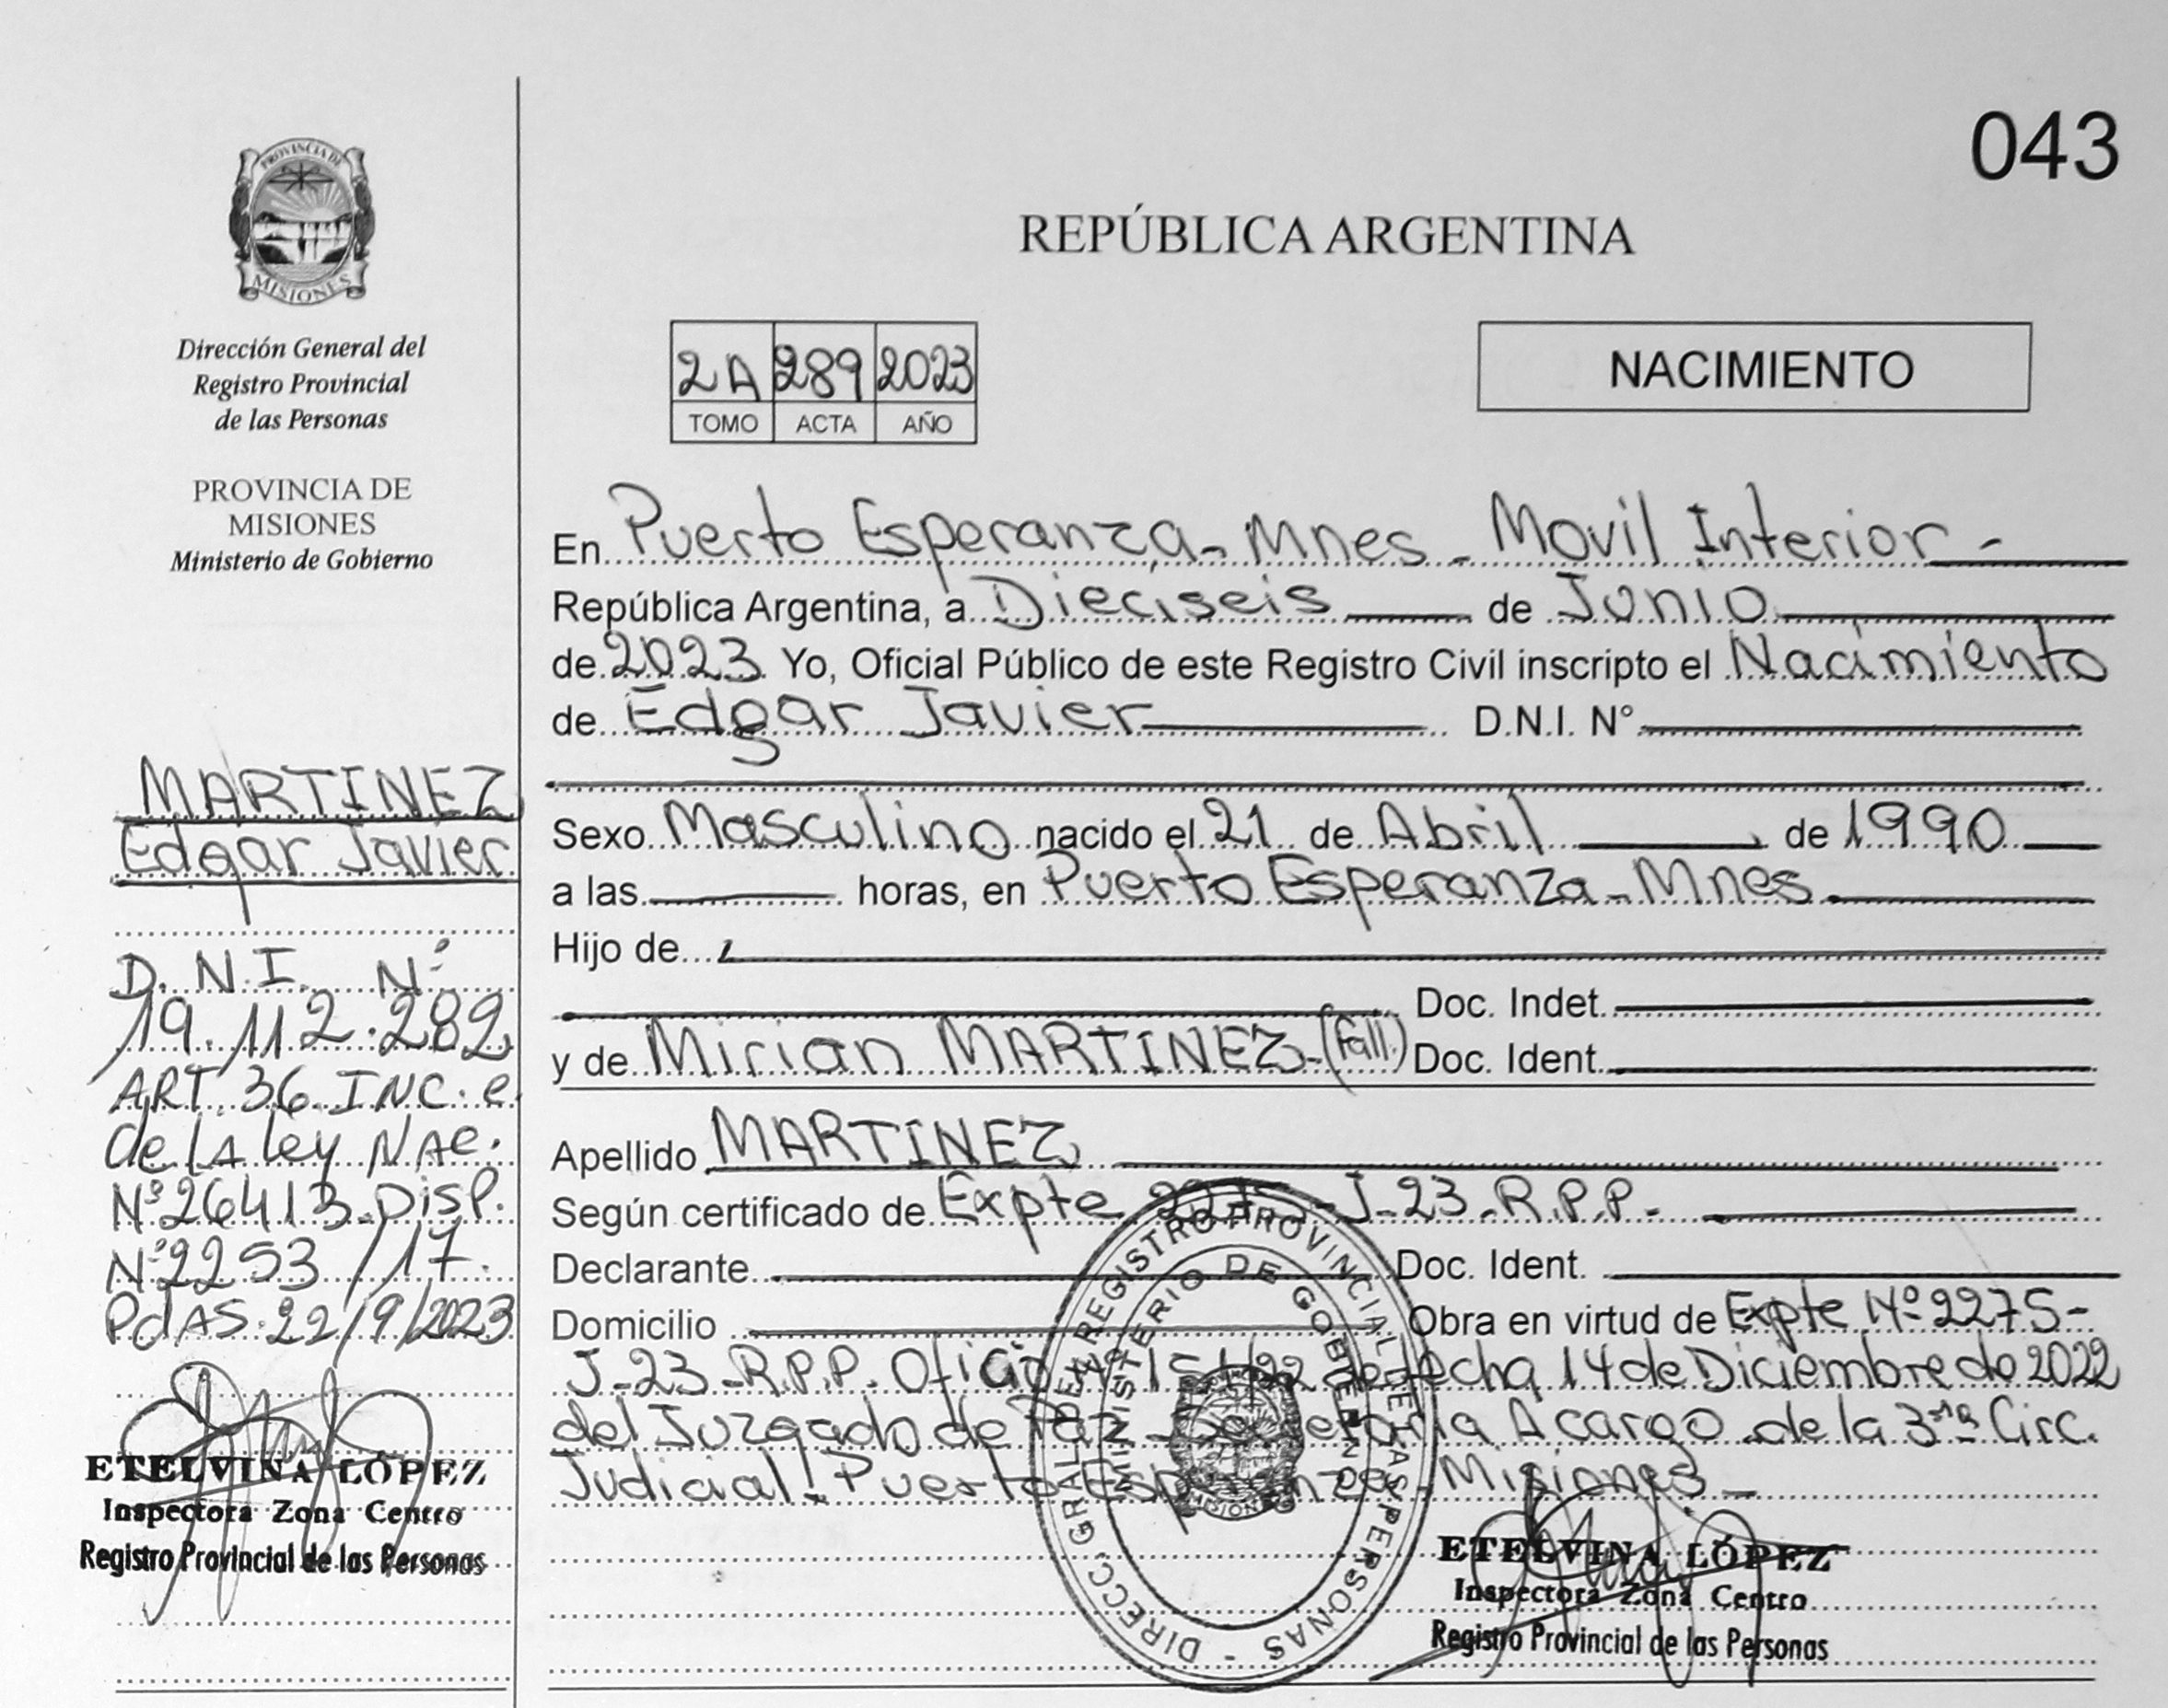 043
PROVINCIA DE
MISIONES
Dirección General del
Registro Provincial
de las Personas
PROVINCIA DE
MISIONES
Ministerio de Gobierno
MARTINEZ
Edgar Javier
D.N.I. Nº
19.112.282
ART. 36 INC. e
de lA ley NAc.
Nº 26413 Disp.
Nº 2253/17.
PdAS. 22/9/2023
ETELVINA LÓPEZ
Inspectora Zona Centro
Registro Provincial de las Personas
REPÚBLICA ARGENTINA
2A 289 2023
TOMO ACTA AÑO
NACIMIENTO
En Puerto Esperanza - Mnes - Movil Interior -
República Argentina, a Dieciseis de Junio
de 2023 Yo, Oficial Público de este Registro Civil inscripto el Nacimiento
de Edgar Javier D.N.I. N°
Sexo Masculino nacido el 21 de Abril de 1990
a las horas, en Puerto Esperanza - Mnes
Hijo de
Doc. Indet.
y de Mirian MARTINEZ - (Fall.) Doc. Ident.
Apellido MARTINEZ
Según certificado de Expte 2275-J-23-R.P.P.-
Declarante Doc. Ident.
Domicilio Obra en virtud de Expte Nº 2275-
J-23-R.P.P. Oficio /22 de fecha 14 de Diciembre de 2022
del Juzgado de Paz - Secretaria A cargo de la 3ra Circ.
Judicial - Puerto Esperanza - Misiones -
DIRECC. GRAL. DEL REGISTRO PROVINCIAL DE LAS PERSONAS -
MINISTERIO DE GOBIERNO
MISIONES
ETELVINA LÓPEZ
Inspectora Zona Centro
Registro Provincial de las Personas